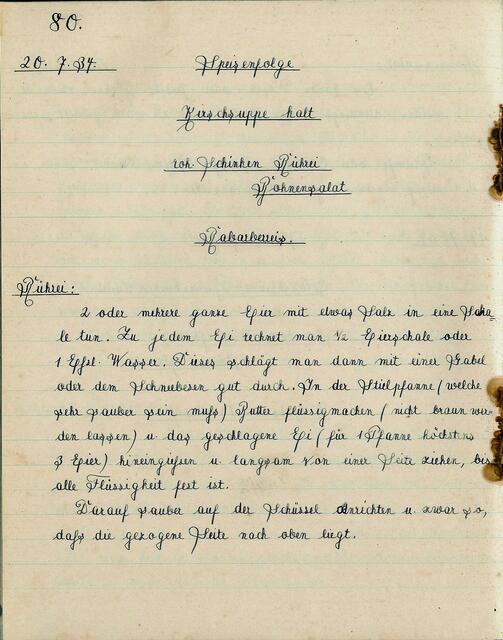 80.
20. 7. 34.
Speisenfolge
Kirschsuppe kalt
roh. Schinken Rührei
Bohnensalat
Rabarbereis.
Rührei:
2 oder mehrere ganze Eier mit etwas Salz in eine Scha=
le tun. Zu jedem Ei rechnet man ½ Eierschale oder
1 Essl. Wasser. Dieses schlägt man dann mit einer Gabel
oder dem Schneebesen gut durch. In der Stielpfanne (welche
sehr sauber sein muſs) Butter flüssigmachen (nicht braun wer-
den lassen) u. das geschlagene Ei (für 1 Pfanne höchstens
3 Eier) hineingießen u. langsam von einer Seite ziehen, bis
alle Flüssigkeit fest ist.
Darauf sauber auf der Schüssel anrichten u. zwar so,
daſs die gezogene Seite nach oben liegt.